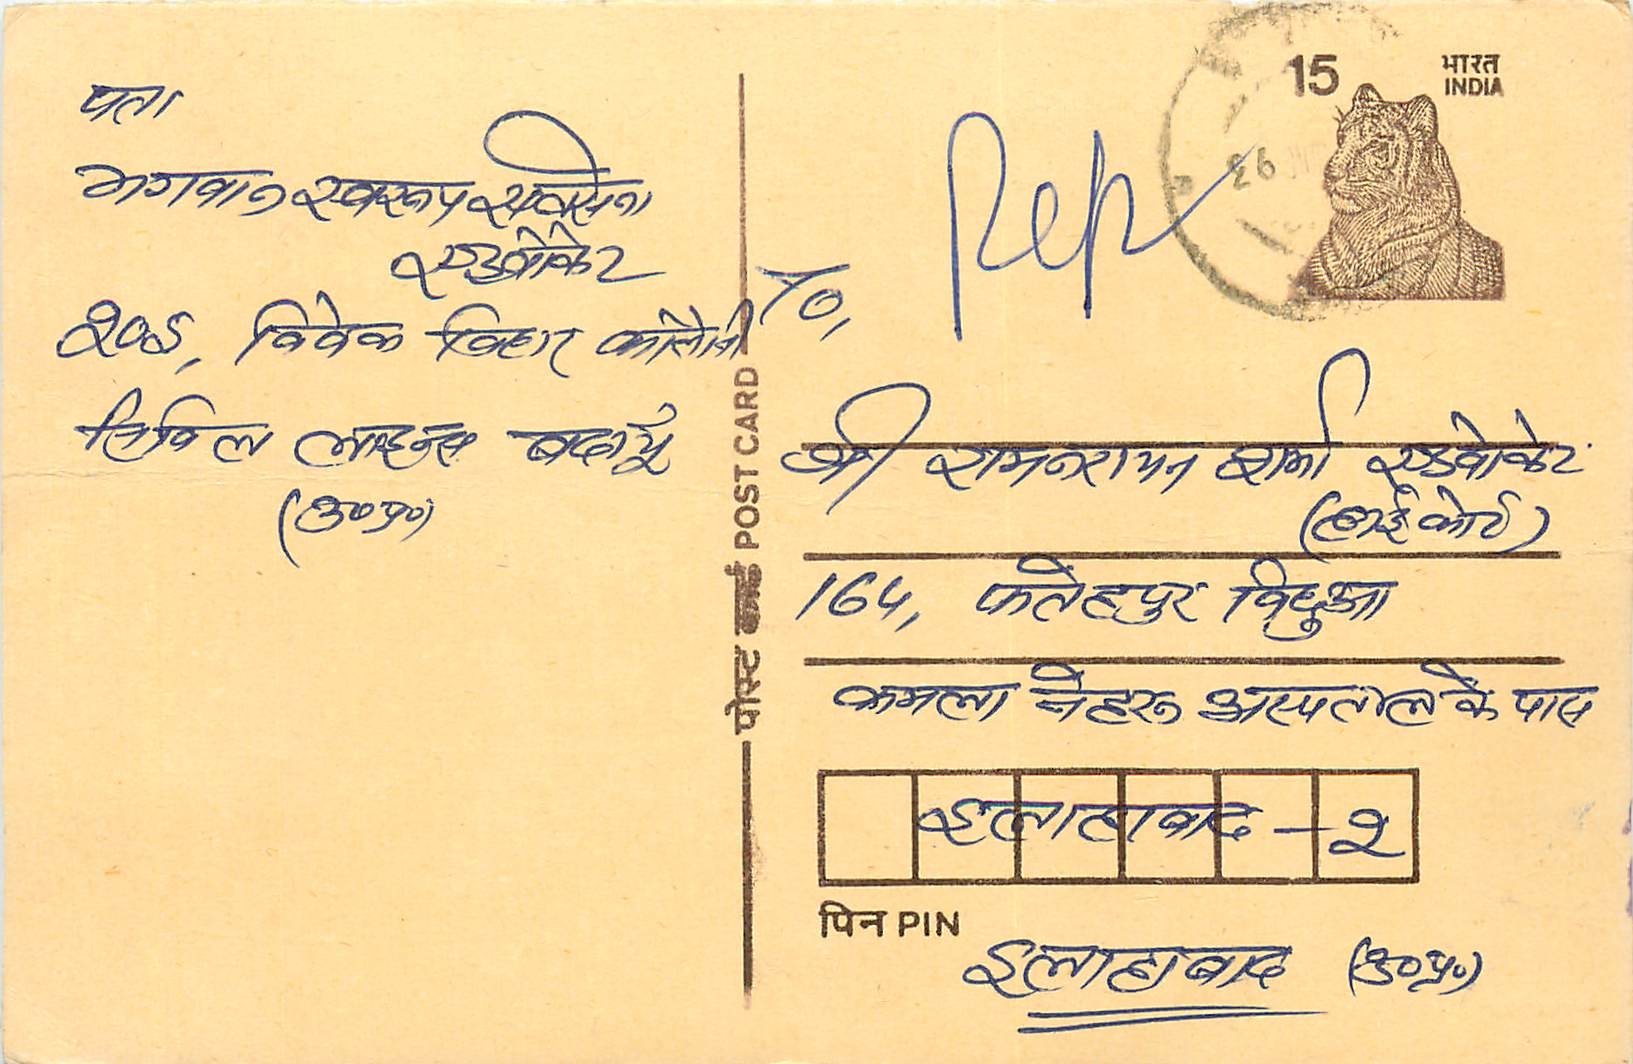 पता
भगवान स्वरूप सक्सेना
एडवोकेट
२०८, विवेक विहार कॉलोनी
सिविल लाइन्स बदायूं
(उ०प्र०)
पोस्ट कार्ड POST CARD
15
भारत
INDIA
93
To,
श्री रामनारायन शर्मा एडवोकेट
(हाई कोर्ट)
164, फतेहपुर बिछुआ
कमला नेहरू अस्पताल के पास
इलाहाबाद - २
पिन PIN
इलाहाबाद (उ०प्र०)